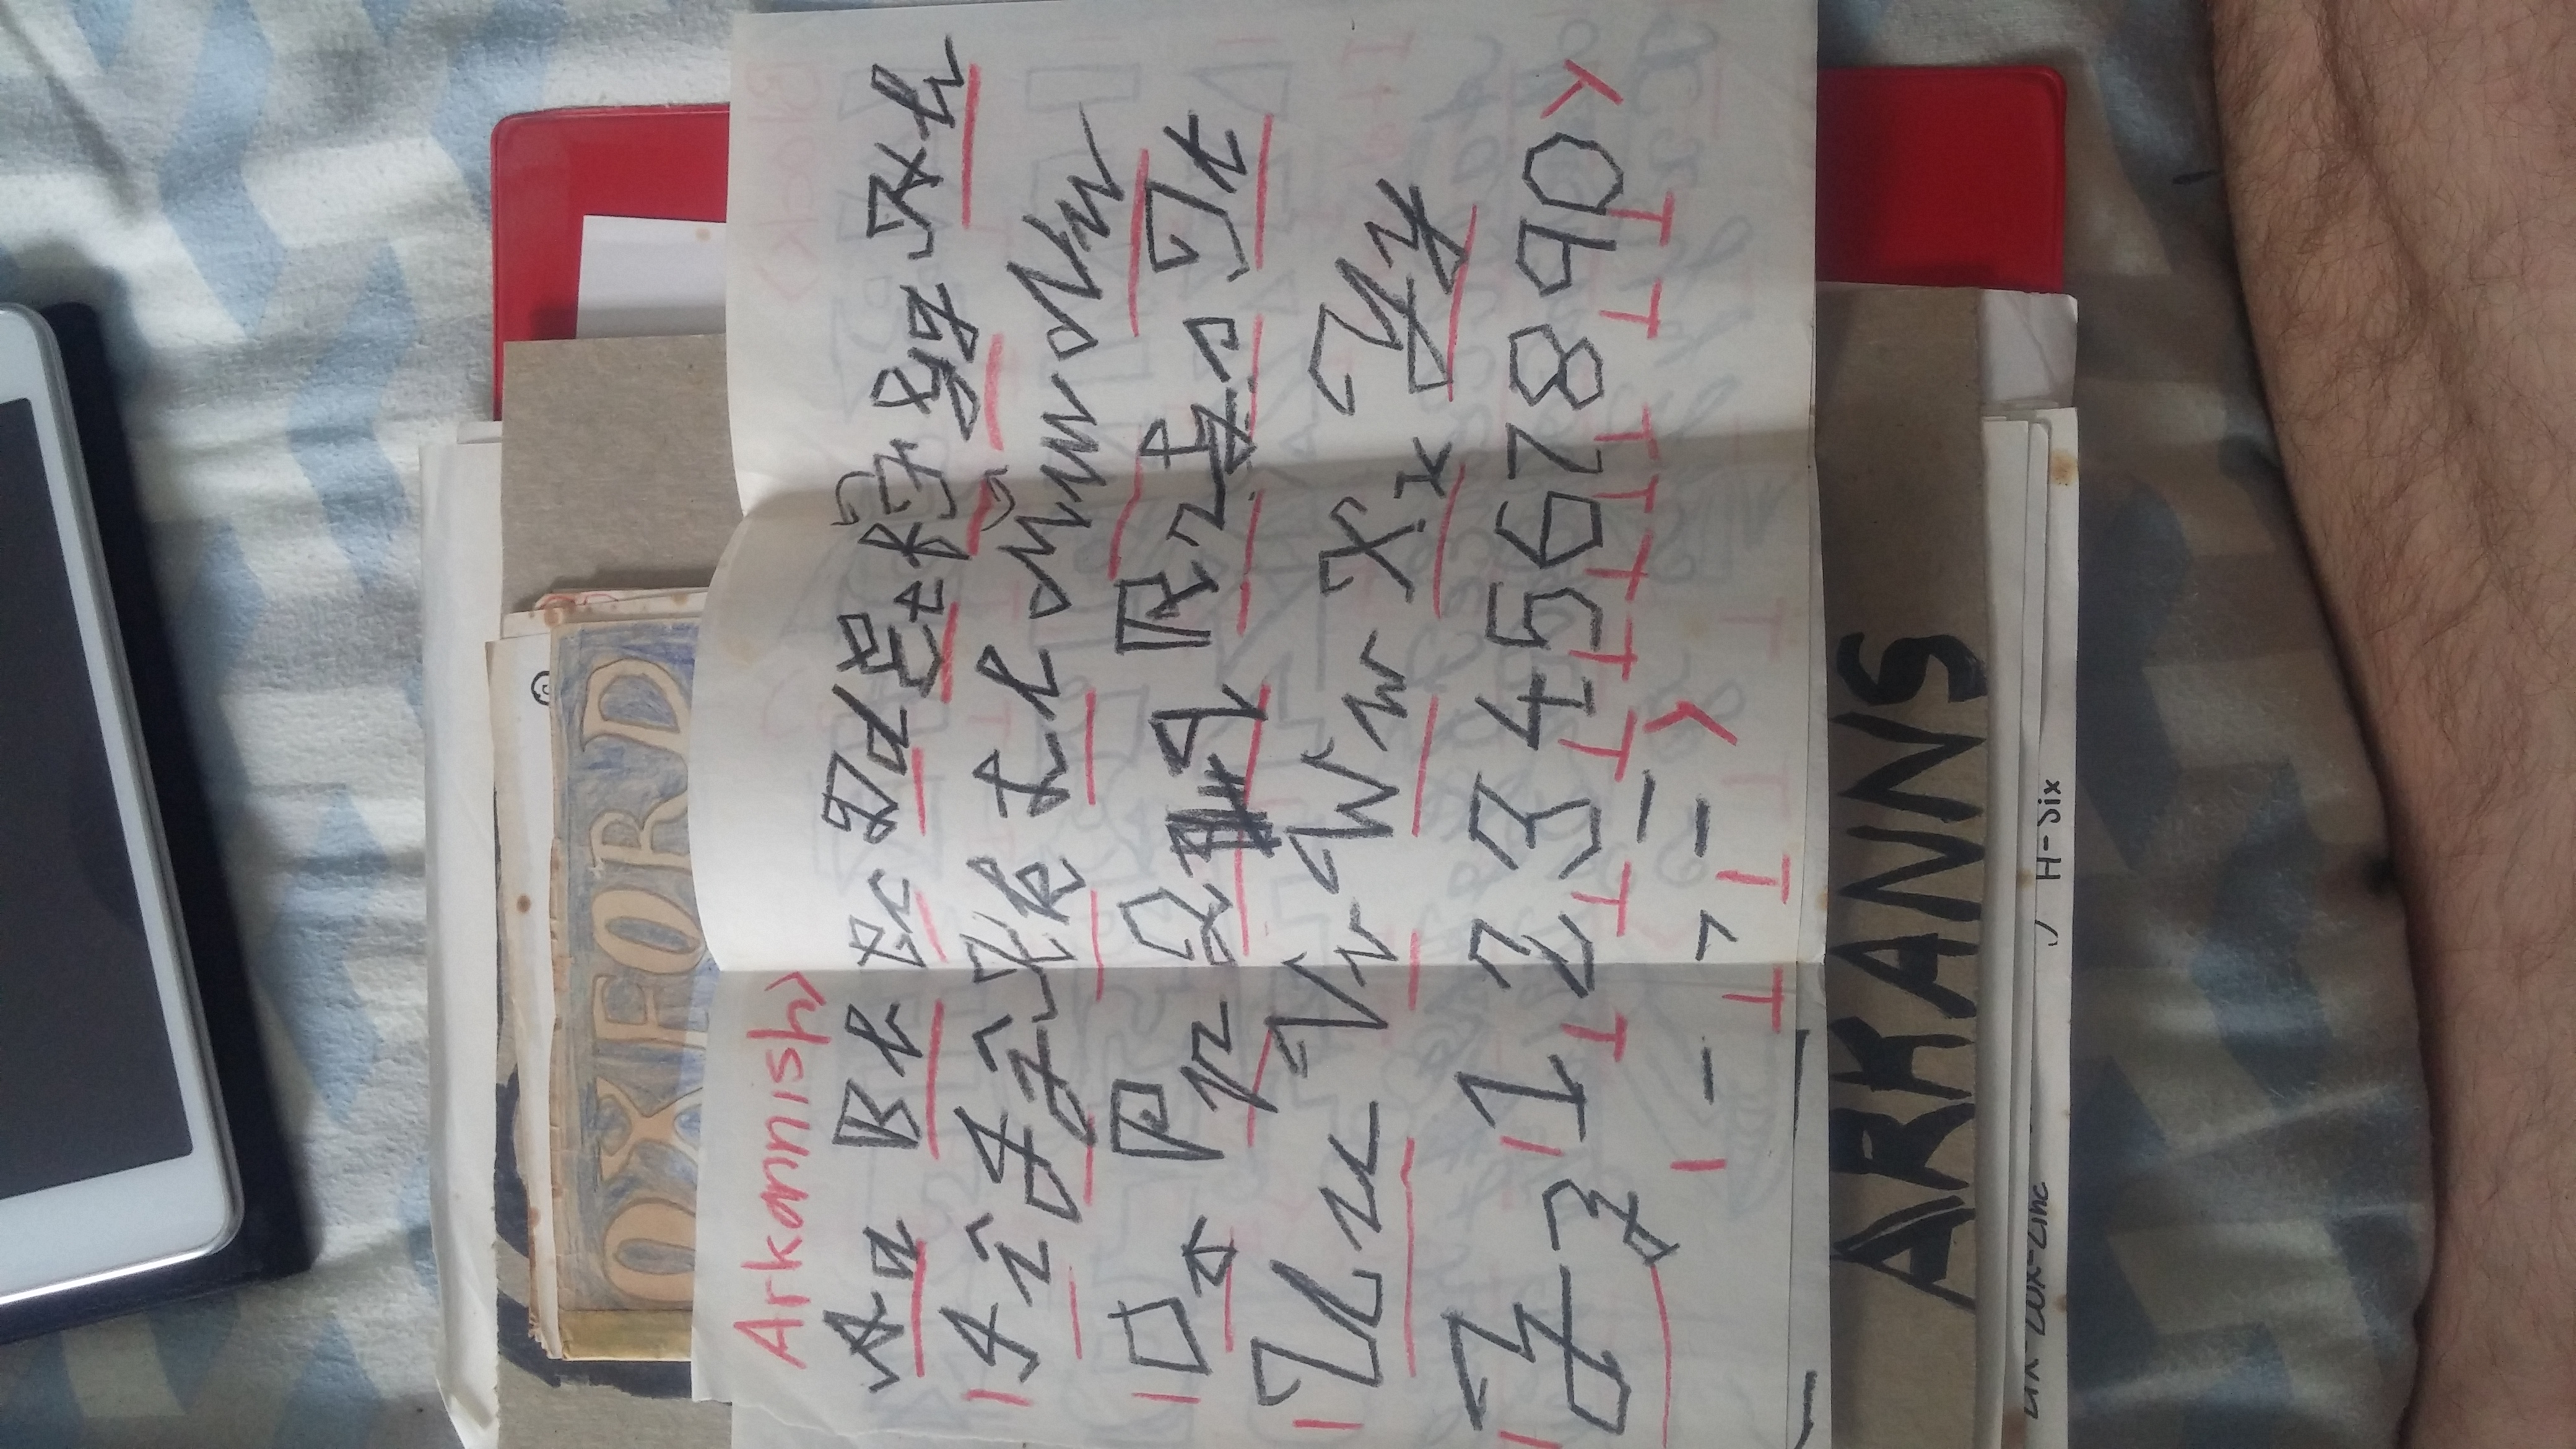 Arkannish>
Aa Bb Cc Dd Ee Ff Gg Hh
Ii Jj Kk Ll Mm Nn
Oo Pp Qq Rr Ss Tt
Uu Vv Ww Xx Yy
Zz 1 2 3 4 5 6 7 8 9 0
OXFORD
ARKANNS
H-Six